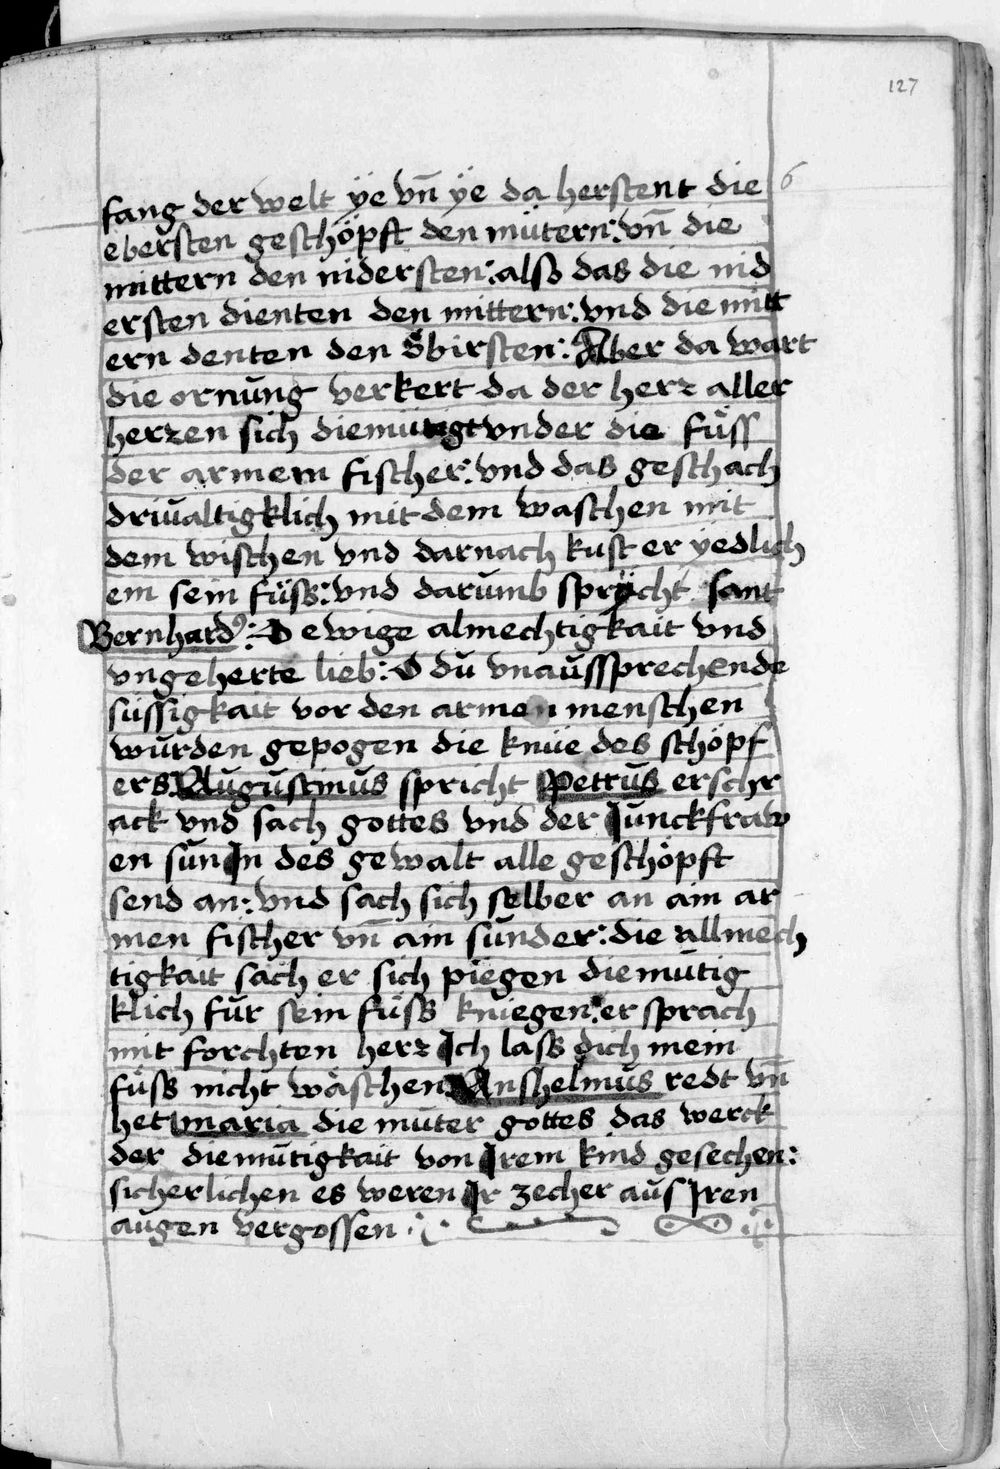 127
6
fang der welt ÿe vn̄ ÿe da herstent die
ebersten geschöpft den mütern: vn̄ die
mittern den nidersten: also das die nid
ersten dienten den mittern: vnd die mitt
ern denten den öbirsten: Aber da wart
die ornung verkert da der herz aller
herzen sich diemütigt vnder die füss
der armem fischer: vnd das geschach
driualtigklich mit dem waschen mit
dem wischen vnd darnach kust er yedlich
em sein füss: vnd darumb sprÿcht sant
Bernhardꝰ: O ewige almechtigkait vnd
vngeherte lieb: O du vnaussprechende
süssigkait vor den armen menschen
wurden gepogen die knüe des schöpf
ers Augustinus spricht Petrus erschr
ack vnd sach gottes vnd der Junckfraw
en sun In des gewalt alle geschöpft
send an: vnd sach sich selber an ain ar
men fischer vn̄ ain sunder: die allmech
tigkait sach er sich piegen diemütig
klich für sein füss kniegen: er sprach
mit forchten herz Ich lass dich mein
füss nicht wäschen Anshelmus redt vn̄
het maria die muter gottes das werck
der diemütigkait von Irem kind gesechen:
sicherlichen es weren Ir zecher aus Iren
augen vergossen